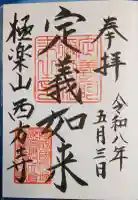 奉拝
令和八年
五月三日
定義如来
極楽山西方寺